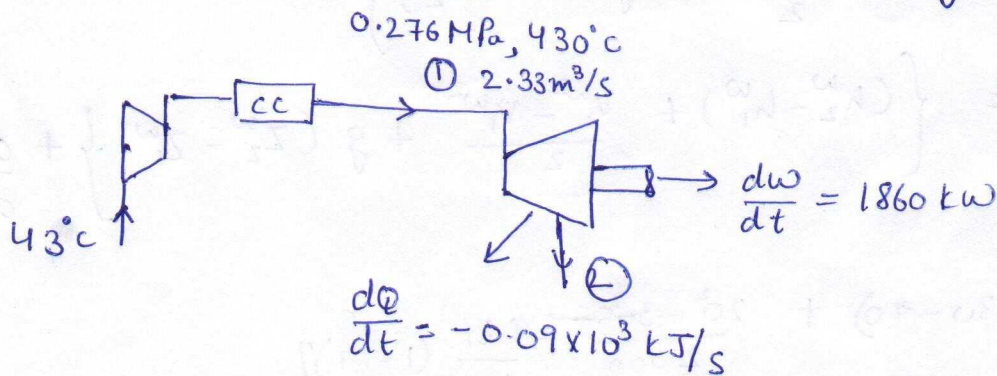 0.276 MPa, 430°C
① 2.33 m³/s
CC
43°C
dw/dt = 1860 kW
②
dQ/dt = -0.09×10³ kJ/s